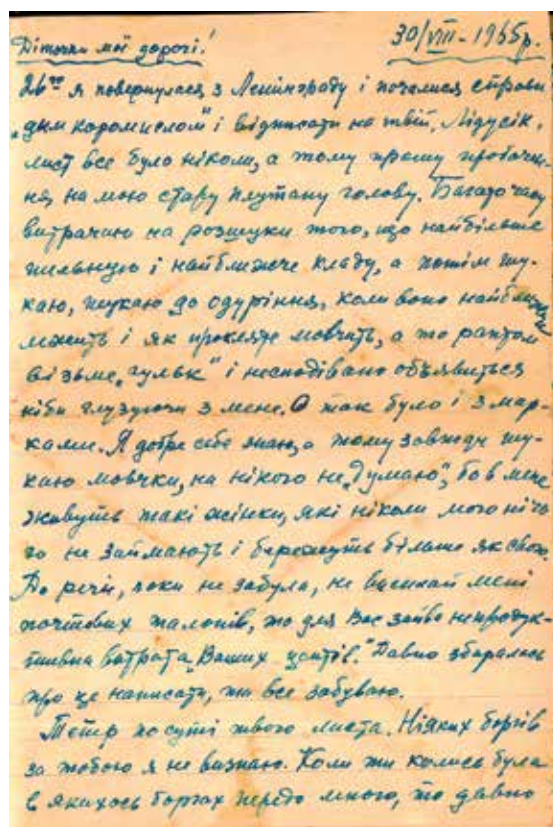 30/VIII - 1965р.
Діточки мої дорогі!
26го я повернулася з Ленінграду і почалися справи
„дым коромислом" і відписати на твій, Лідусік,
лист все було ніколи, а тому прошу пробачен-
ня, на мою стару плутану голову. Багато часу
витрачаю на розшуки того, що найбільше
пильную і найближче кладу, а потім шу-
каю, шукаю до одуріння, коли воно найближче
лежить і як прокляте мовчить, а то раптом
візьме „гульк" і несподівано объявиться
ніби глузуючи з мене. О так було і з мар-
ками. Я добре себе знаю, а тому завжди шу-
каю мовчки, на нікого не „думаю", бо в мене
живуть такі жінки, які ніколи мого нічо
го не займають і бережуть більше як своє.
До речі, поки не забула, не висилай мені
почтових талонів, то для Вас зайва непродук-
тивна витрата „Ваших центів." Давно збиралась
про це написати, та все забуваю.
Тепер по суті твого листа. Ніяких боргів
за тобою я не визнаю. Коли ти колись була
в якихось боргах передо мною, то давно